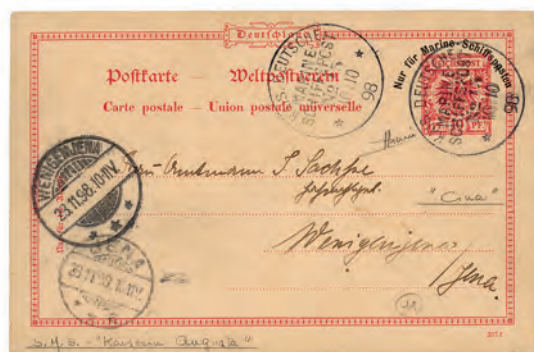 Deutschland
Postkarte — Weltpostverein
Carte postale — Union postale universelle
Nur für Marine-Schiffsposten
K. D. S. DEUTSCHE MARINE-SCHIFFSPOST
10
98
K. D. S. DEUTSCHE MARINE-SCHIFFSPOST
10
98
WENIGENJENA
23.11.98.10-11V.
JENA
23.11.98.10-11V.
Frau Amtmann J. Sachse
"Cina"
Wenigenjena
/Jena
S.M.S. - "Kaiserin Augusta"